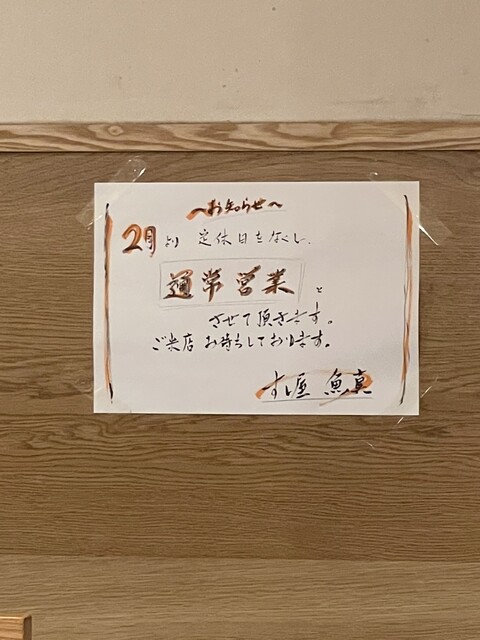 〜お知らせ〜
2月より 定休日をなくし、
通常営業と
させて頂きます。
ご来店 お待ちしております。
すし屋 魚真